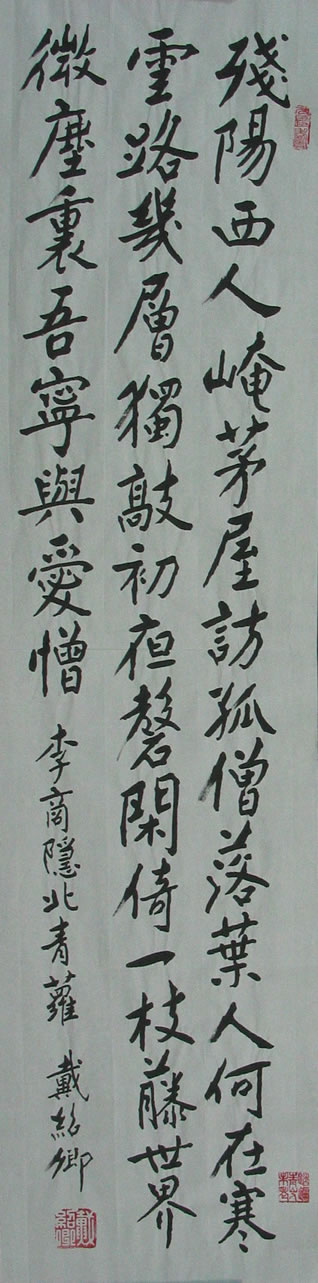 殘陽西人崦茅屋訪孤僧落葉人何在寒
雲路幾層獨敲初夜磬閑倚一枝藤世界
微塵裏吾寧與愛憎 李商隱北青蘿 戴紹卿